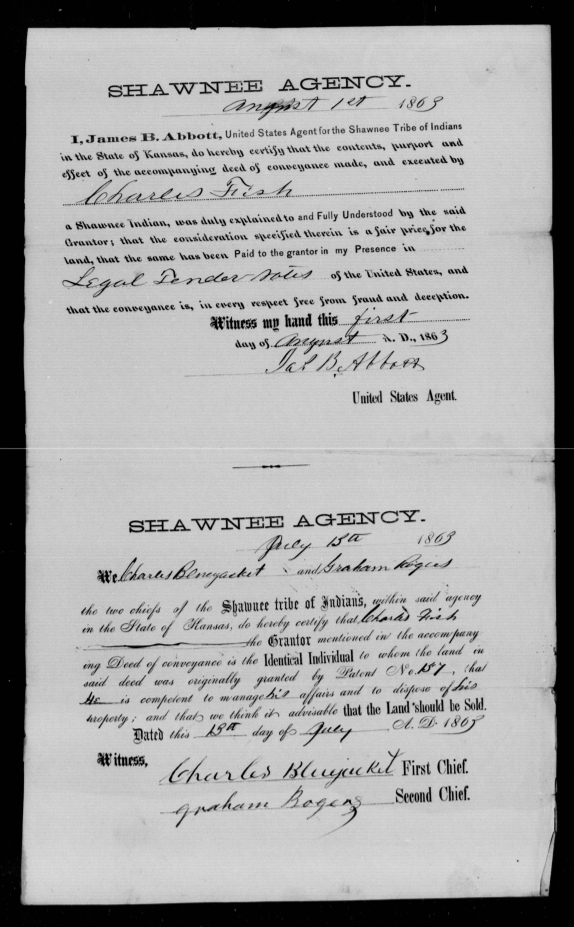 SHAWNEE AGENCY.
August 1st 1863
I, James B. Abbott, United States Agent for the Shawnee Tribe of Indians
in the State of Kansas, do hereby certify that the contents, purport and
effect of the accompanying deed of conveyance made, and executed by
Charles Fish
a Shawnee Indian, was duly explained to and Fully Understood by the said
Grantor; that the consideration specified therein is a fair price for the
land, that the same has been Paid to the grantor in my Presence in
Legal Tender Notes of the United States, and
that the conveyance is, in every respect free from fraud and deception.
Witness my hand this first
day of August A. D., 1863
Jas B. Abbott
United States Agent.
SHAWNEE AGENCY.
July 13th 1863
We Charles Bluejacket and Graham Rogers
the two chiefs of the Shawnee tribe of Indians, within said agency
in the State of Kansas, do hereby certify that, Charles Fish
the Grantor mentioned in the accompany
ing Deed of conveyance is the Identical Individual to whom the land in
said deed was originally granted by Patent No. 157, that
He is competent to manage his affairs and to dispose of his
property; and that we think it advisable that the Land should be Sold.
Dated this 13th day of July A. D. 1863
Witness,
Charles Bluejacket First Chief.
Graham Rogers Second Chief.